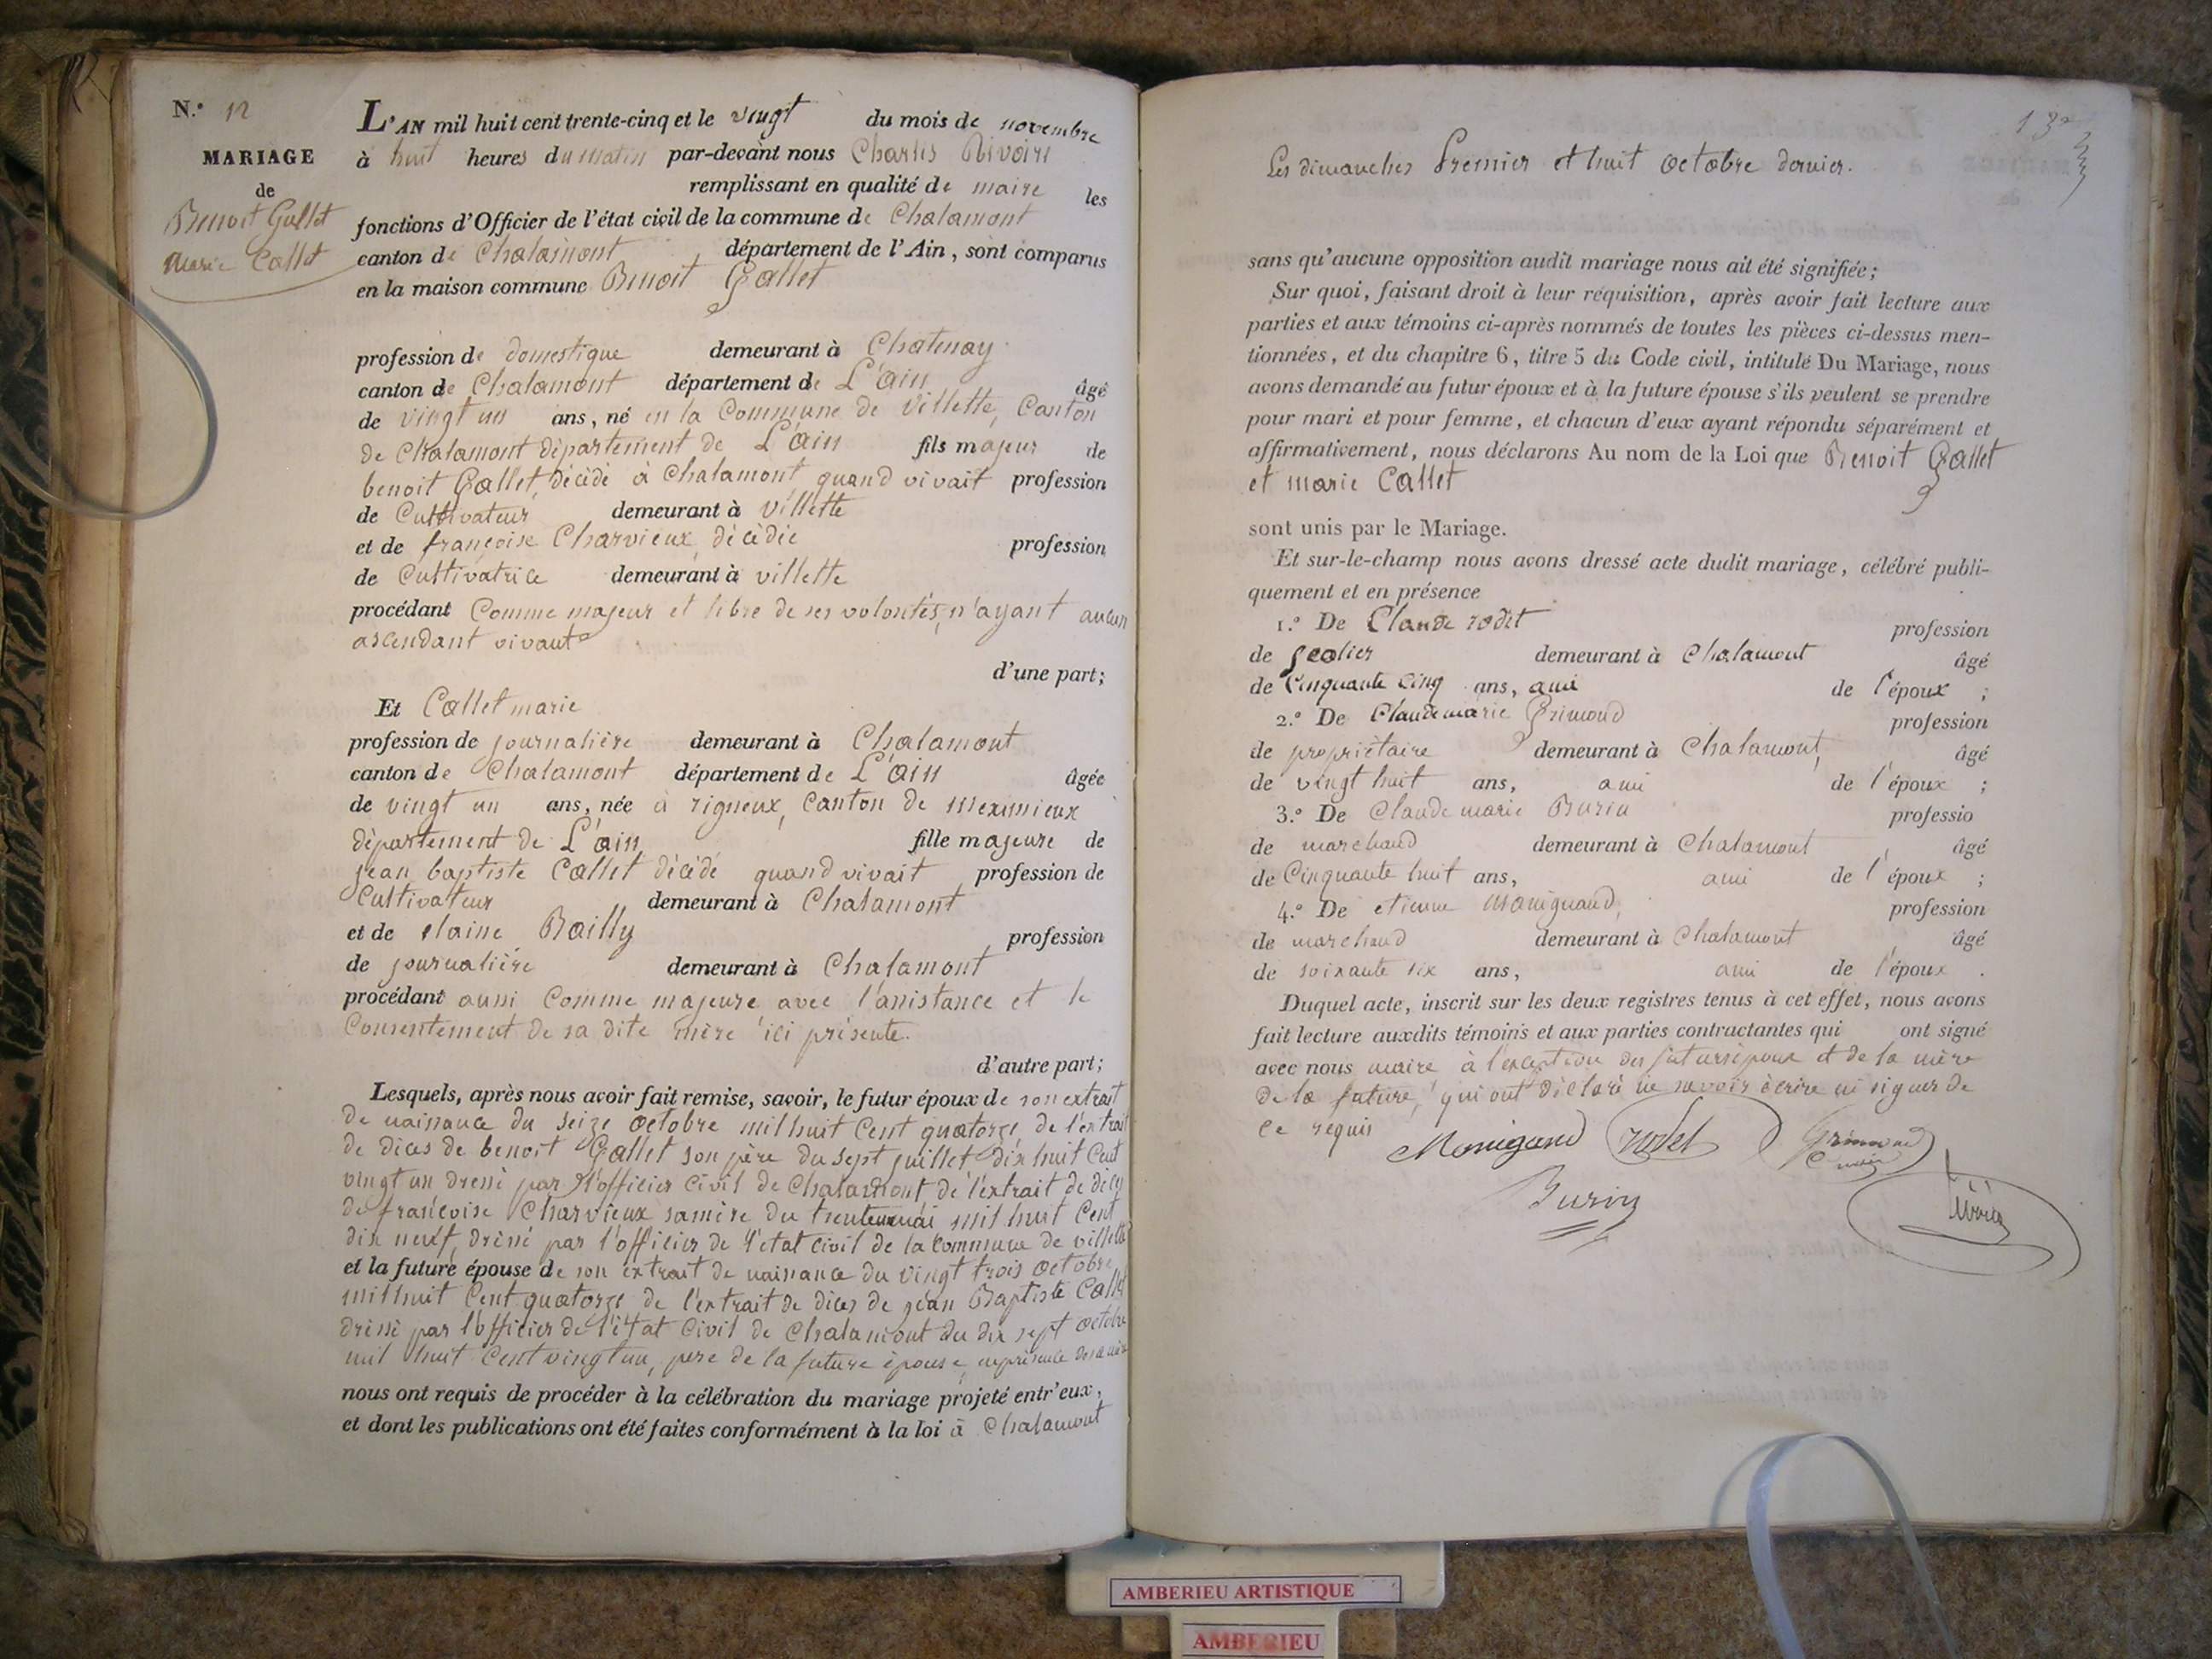 N.o 12
MARIAGE
de
Benoit Gallet
Marie Callet
L'AN mil huit cent trente-cinq et le vingt du mois de novembre
à huit heures du matin par-devant nous Charles Rivoire
remplissant en qualité de maire les
fonctions d'Officier de l'état civil de la commune de Chalamont
canton de Chalamont département de l'Ain, sont comparus
en la maison commune Benoit Gallet
profession de domestique demeurant à Chatenay
canton de Chalamont département de L'ain âgé
de vingt un ans, né en la Commune de Villette, Canton
de Chalamont département de L'ain fils majeur de
benoit Gallet, décédé à Chalamont quand vivait profession
de Cultivateur demeurant à Villette
et de françoise Charvieux, décédée profession
de Cultivatrice demeurant à villette
procédant Comme majeur et libre de ses volontés, n'ayant aucun
ascendant vivant
d'une part;
Et Callet marie
profession de journalière demeurant à Chalamont
canton de Chalamont département de L'ain âgée
de vingt un ans, née à rigneux, Canton de meximieux
département de L'ain fille majeure de
jean baptiste Callet décédé quand vivait profession de
Cultivateur demeurant à Chalamont
et de claine Bailly profession
de journalière demeurant à Chalamont
procédant aussi Comme majeure avec l'assistance et le
Consentement de sa dite mère ici présente.
d'autre part;
Lesquels, après nous avoir fait remise, savoir, le futur époux de son extrait
de naissance du seize octobre mil huit Cent quatorze, de l'extrait
de dicès de benoit Gallet son père du sept juillet dix huit Cent
vingt un dressé par l'officier Civil de Chalamont, de l'extrait de dicès
de françoise Charvieux sa mère du trente mai mil huit Cent
dix neuf, dressé par l'officier de l'état civil de la Commune de villette
et la future épouse de son extrait de naissance du vingt trois octobre
mil huit Cent quatorze de l'extrait de dicès de jean Baptiste Callet
dressé par l'officier de l'état Civil de Chalamont du dix sept octobre
mil huit Cent vingt un, pere de la future épouse,
nous ont requis de procéder à la célébration du mariage projeté entr'eux,
et dont les publications ont été faites conformément à la loi à Chalamont
13
Les dimanches Premier et huit octobre dernier.
sans qu'aucune opposition audit mariage nous ait été signifiée;
Sur quoi, faisant droit à leur réquisition, après avoir fait lecture aux
parties et aux témoins ci-après nommés de toutes les pièces ci-dessus men-
tionnées, et du chapitre 6, titre 5 du Code civil, intitulé Du Mariage, nous
avons demandé au futur époux et à la future épouse s'ils veulent se prendre
pour mari et pour femme, et chacun d'eux ayant répondu séparément et
affirmativement, nous déclarons Au nom de la Loi que Benoit Gallet
et marie Callet
sont unis par le Mariage.
Et sur-le-champ nous avons dressé acte dudit mariage, célébré publi-
quement et en présence
1.o De Claude rodet profession
de geolier demeurant à Chalamont âgé
de Cinquante Cinq ans, ami de l'époux ;
2.o De Claude marie Grimoud profession
de propriétaire demeurant à Chalamont, âgé
de vingt huit ans, ami de l'époux ;
3.o De Claude marie Burin professio
de marchand demeurant à Chalamont âgé
de Cinquante huit ans, ami de l'époux ;
4.o De etienne Monignand, profession
de marchand demeurant à Chalamont âgé
de soixante six ans, ami de l'époux .
Duquel acte, inscrit sur les deux registres tenus à cet effet, nous avons
fait lecture auxdits témoins et aux parties contractantes qui ont signé
avec nous maire à l'exception des futurs époux et de la mère
de la future, qui ont déclaré ne savoir écrire ni signer de
ce requis
Monigand rodet
Burin
AMBERIEU ARTISTIQUE
AMBERIEU